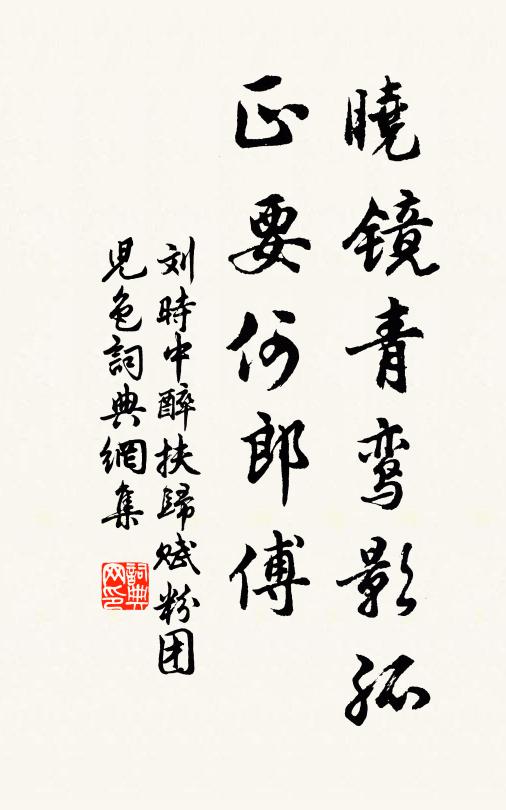 曉镜青鸾影孤
正要何郎傅
刘時中醉扶歸赋粉团
児色詞典網集
詞典网印